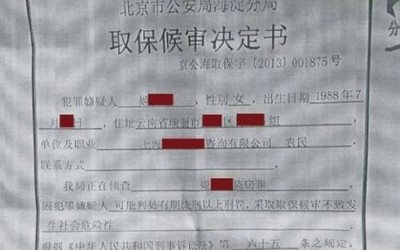 北京市公安局海淀分局
取保候审决定书
京公海取保字〔2013〕001875号
犯罪嫌疑人 姬 性别 女 ，出生日期 1988年7
月 日 ，住址 云南省 市 区 组
单位及职业 上海 咨询有限公司 农民
联系方式
我局正在侦查 盗窃罪
因犯罪嫌疑人 可能判处有期徒刑以上刑罚，采取取保候审不致发
生社会危险性
根据《中华人民共和国刑事诉讼法》第 六十五 条之规定，
分